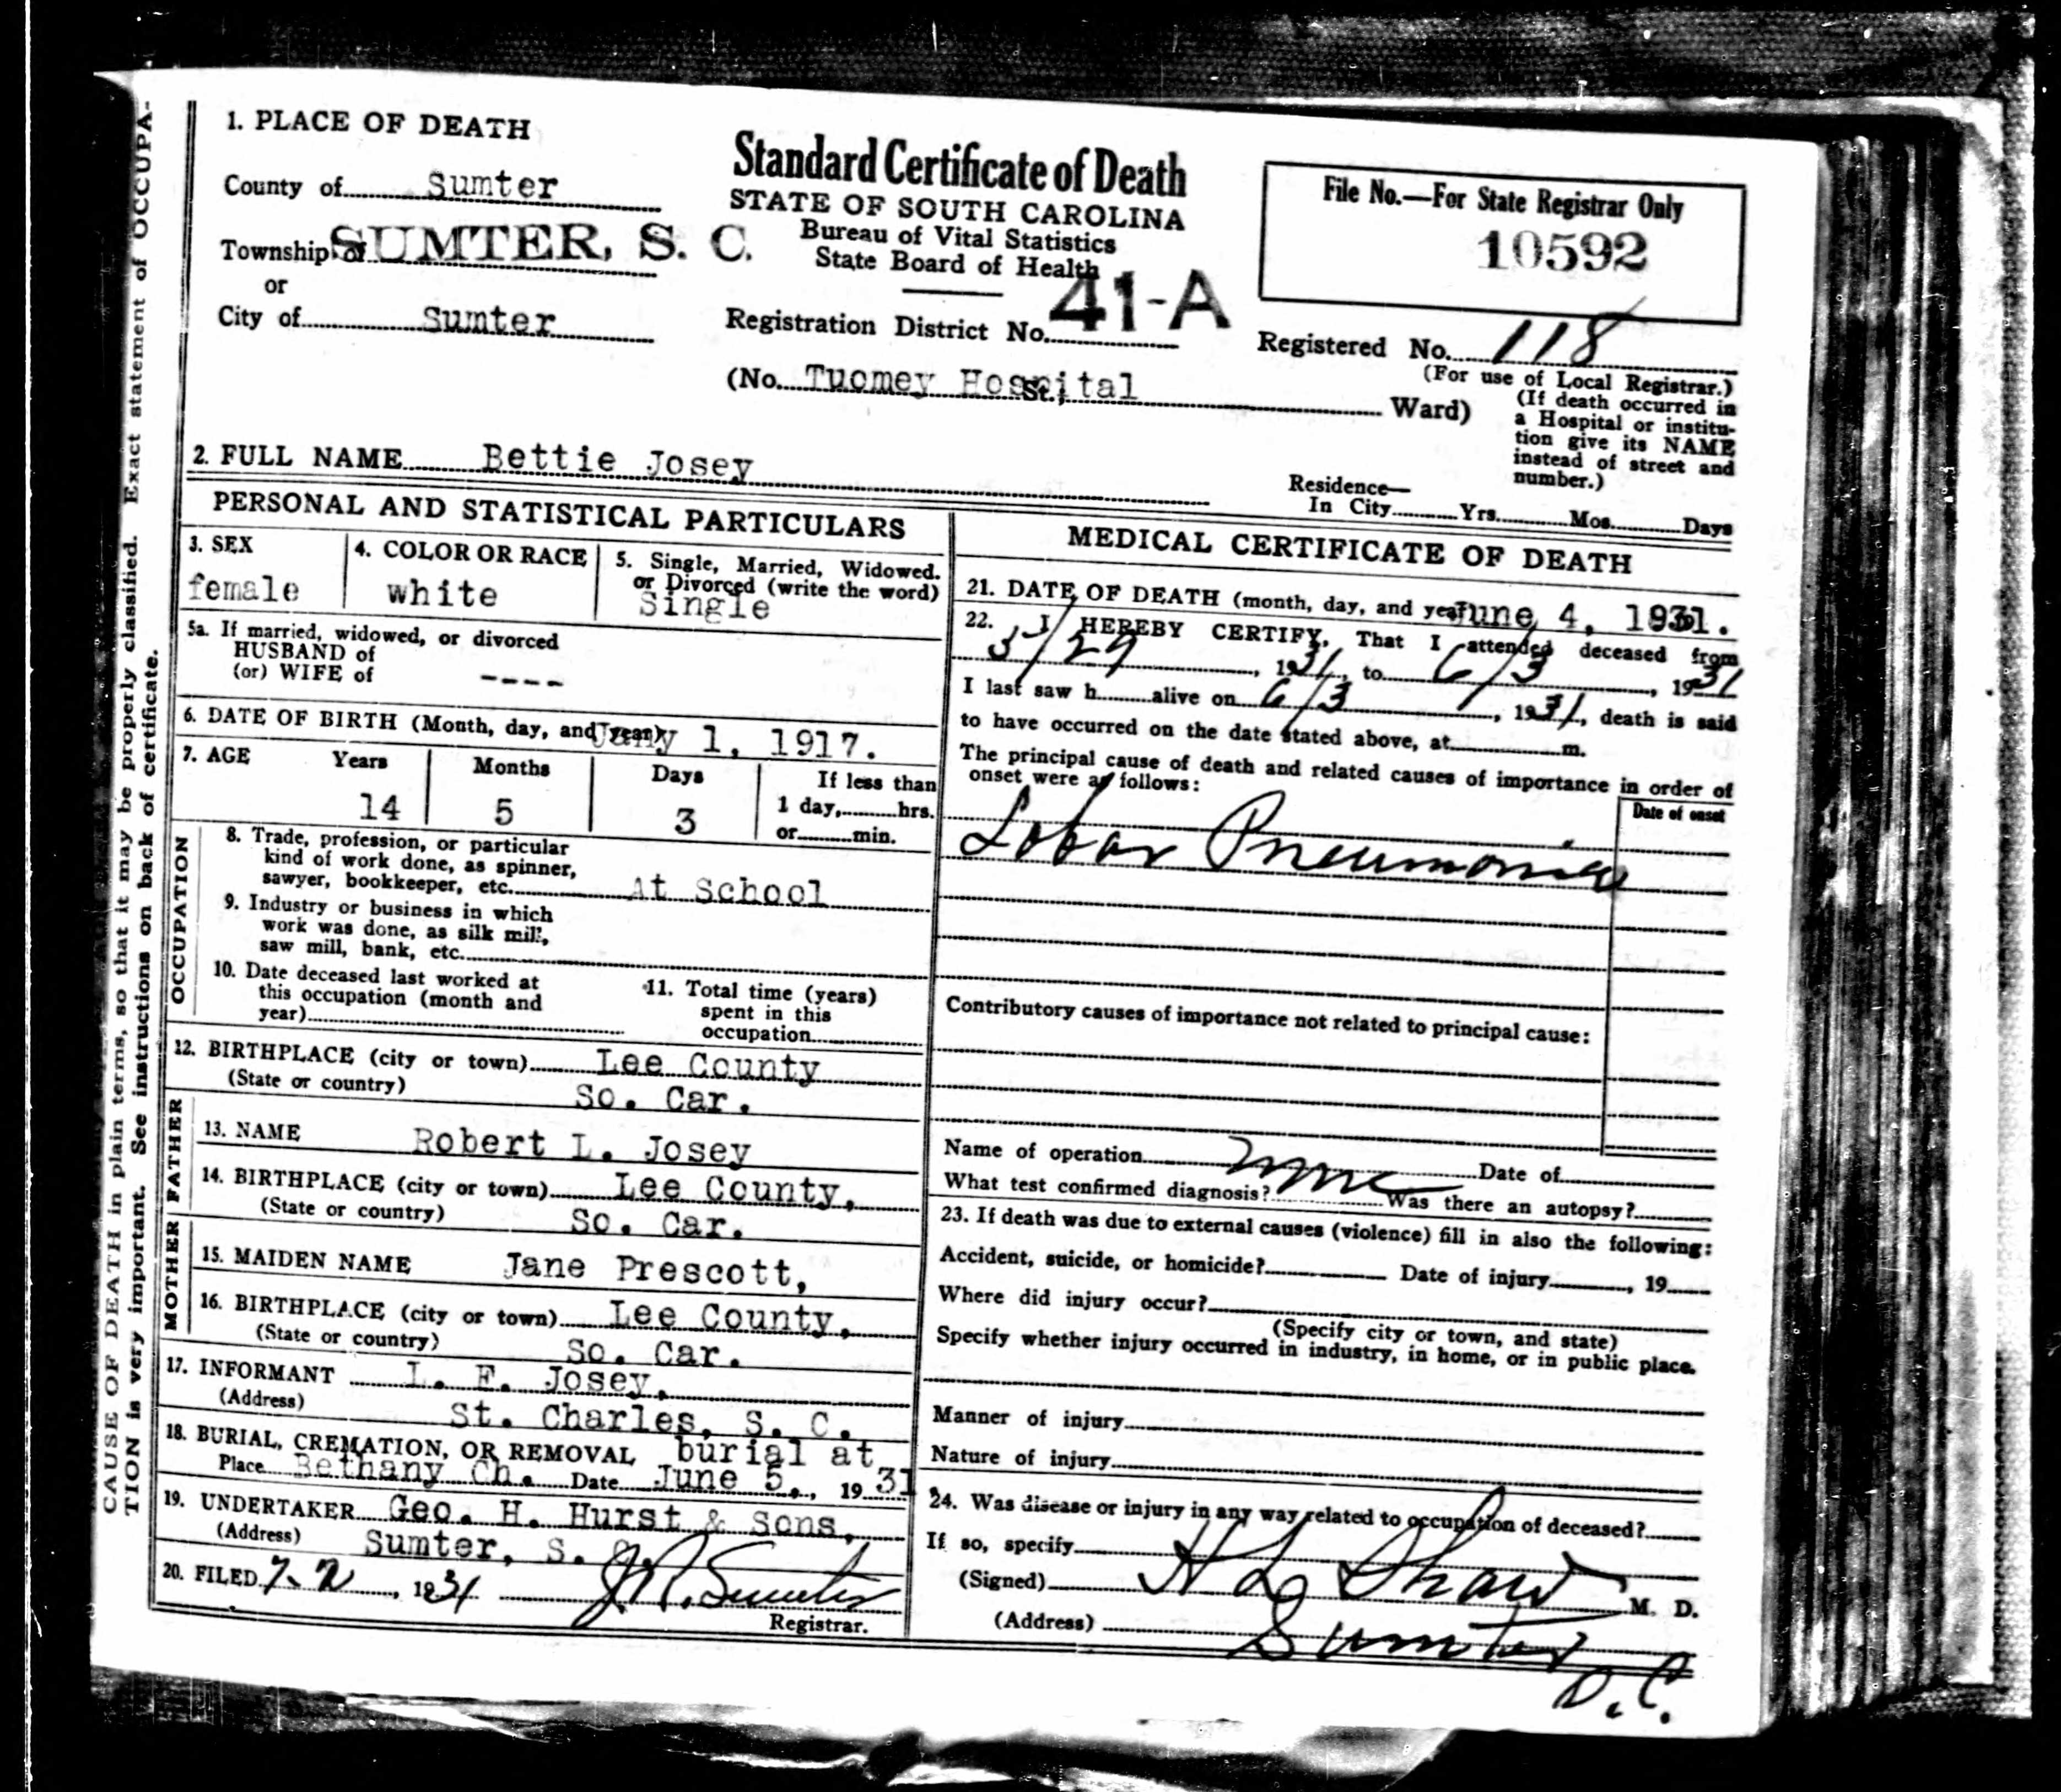 CAUSE OF DEATH in plain terms, so that it may be properly classified. Exact statement of OCCUPA-
TION is very important. See instructions on back of certificate.
1. PLACE OF DEATH
County of Sumter
Township of SUMTER, S. C.
or
City of Sumter
Standard Certificate of Death
STATE OF SOUTH CAROLINA
Bureau of Vital Statistics
State Board of Health
Registration District No. 41-A
(No. Tuomey Hospital St.; Ward)
File No.—For State Registrar Only
10592
Registered No. 118
(For use of Local Registrar.)
(If death occurred in
a Hospital or institu-
tion give its NAME
instead of street and
number.)
2. FULL NAME Bettie Josey
Residence—
In City Yrs. Mos. Days
PERSONAL AND STATISTICAL PARTICULARS
3. SEX
female
4. COLOR OR RACE
white
5. Single, Married, Widowed.
or Divorced (write the word)
Single
5a. If married, widowed, or divorced
HUSBAND of
(or) WIFE of ----
6. DATE OF BIRTH (Month, day, and year) Jany 1, 1917.
7. AGE Years Months Days If less than
14 5 3 1 day, hrs.
or min.
OCCUPATION
8. Trade, profession, or particular
kind of work done, as spinner,
sawyer, bookkeeper, etc. At School
9. Industry or business in which
work was done, as silk mill,
saw mill, bank, etc.
10. Date deceased last worked at
this occupation (month and
year)
11. Total time (years)
spent in this
occupation
12. BIRTHPLACE (city or town) Lee County
(State or country) So. Car.
FATHER
13. NAME Robert L. Josey
14. BIRTHPLACE (city or town) Lee County,
(State or country) So. Car.
MOTHER
15. MAIDEN NAME Jane Prescott,
16. BIRTHPLACE (city or town) Lee County,
(State or country) So. Car.
17. INFORMANT L. E. Josey,
(Address) St. Charles, S. C.
18. BURIAL, CREMATION, OR REMOVAL burial at
Place Bethany Ch. Date June 5., 1931
19. UNDERTAKER Geo. H. Hurst & Sons,
(Address) Sumter, S. C.
20. FILED 7-2, 1931 J.R. Sumter
Registrar.
MEDICAL CERTIFICATE OF DEATH
21. DATE OF DEATH (month, day, and year) June 4, 1931.
22. I HEREBY CERTIFY, That I attended deceased from
5/29, 1931, to 6/3, 1931
I last saw h alive on 6/3, 1931, death is said
to have occurred on the date stated above, at m.
The principal cause of death and related causes of importance in order of
onset were as follows:
Date of onset
Lobar Pneumonia
Contributory causes of importance not related to principal cause:
Name of operation none Date of
What test confirmed diagnosis? Was there an autopsy?
23. If death was due to external causes (violence) fill in also the following:
Accident, suicide, or homicide? Date of injury, 19
Where did injury occur?
(Specify city or town, and state)
Specify whether injury occurred in industry, in home, or in public place.
Manner of injury
Nature of injury
24. Was disease or injury in any way related to occupation of deceased?
If so, specify
(Signed) H L Shaw M. D.
(Address) Sumter
S. C.